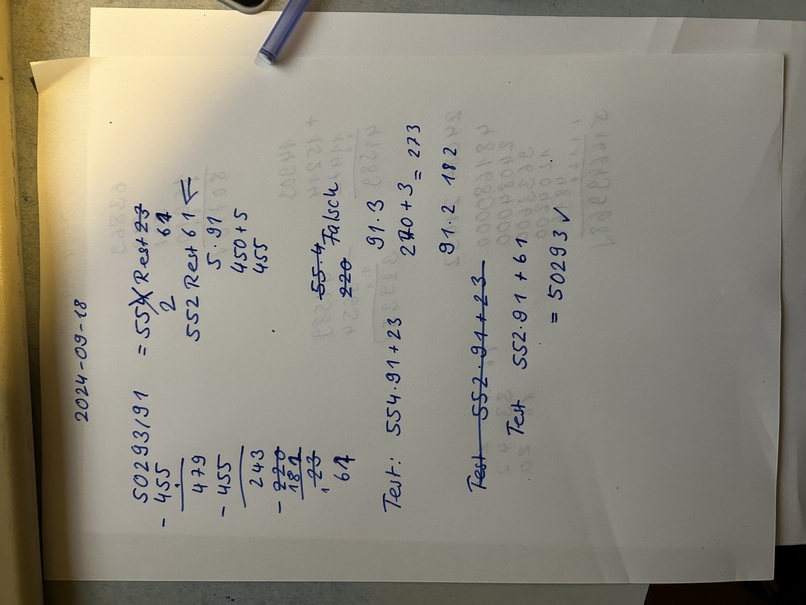 2024-09-18
50293/91 = 554 Rest 23
- 455 2 61
479 552 Rest 61 ⇐
- 455 5·91
243 450+5
- 220 455
182
23 55·4 Falsch
61 220
91·3
Test: 554·91+23 270+3 = 273
91·2 182
Test 552·91+23
Test 552·91+61
= 50293 ✓